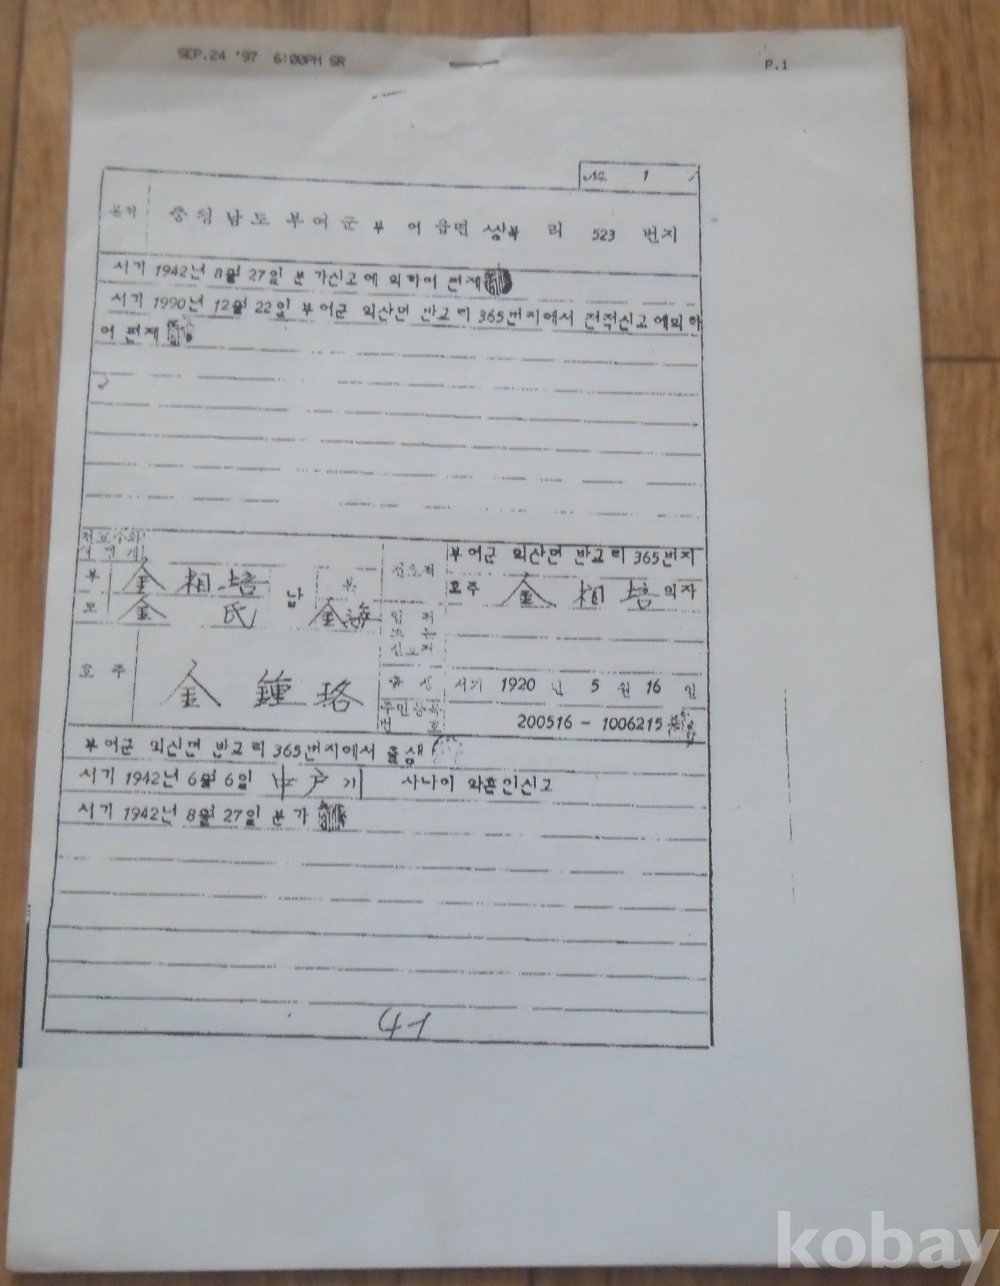 SEP.24 '97 6:00PM SR P.1
No. 1
본적 충청남도 부여군 부여읍면 쌍북리 523 번지
서기 1942년 8월 27일 분가신고에 의하여 편제
서기 1990년 12월 22일 부여군 외산면 반교리 365번지에서 전적신고에의하
여 편제
부여군 외산면 반교리 365번지
부 金相培 남 본 전호적 호주 金相培 의자
모 金氏 金海 입적
호주 金鍾珞
출생 서기 1920 년 5 월 16 일
주민등록번호 200516-1006215
부여군 외산면 반교리 365번지에서 출생
서기 1942년 6월 6일 혼인신고
서기 1942년 8월 27일 분가
41
kobay